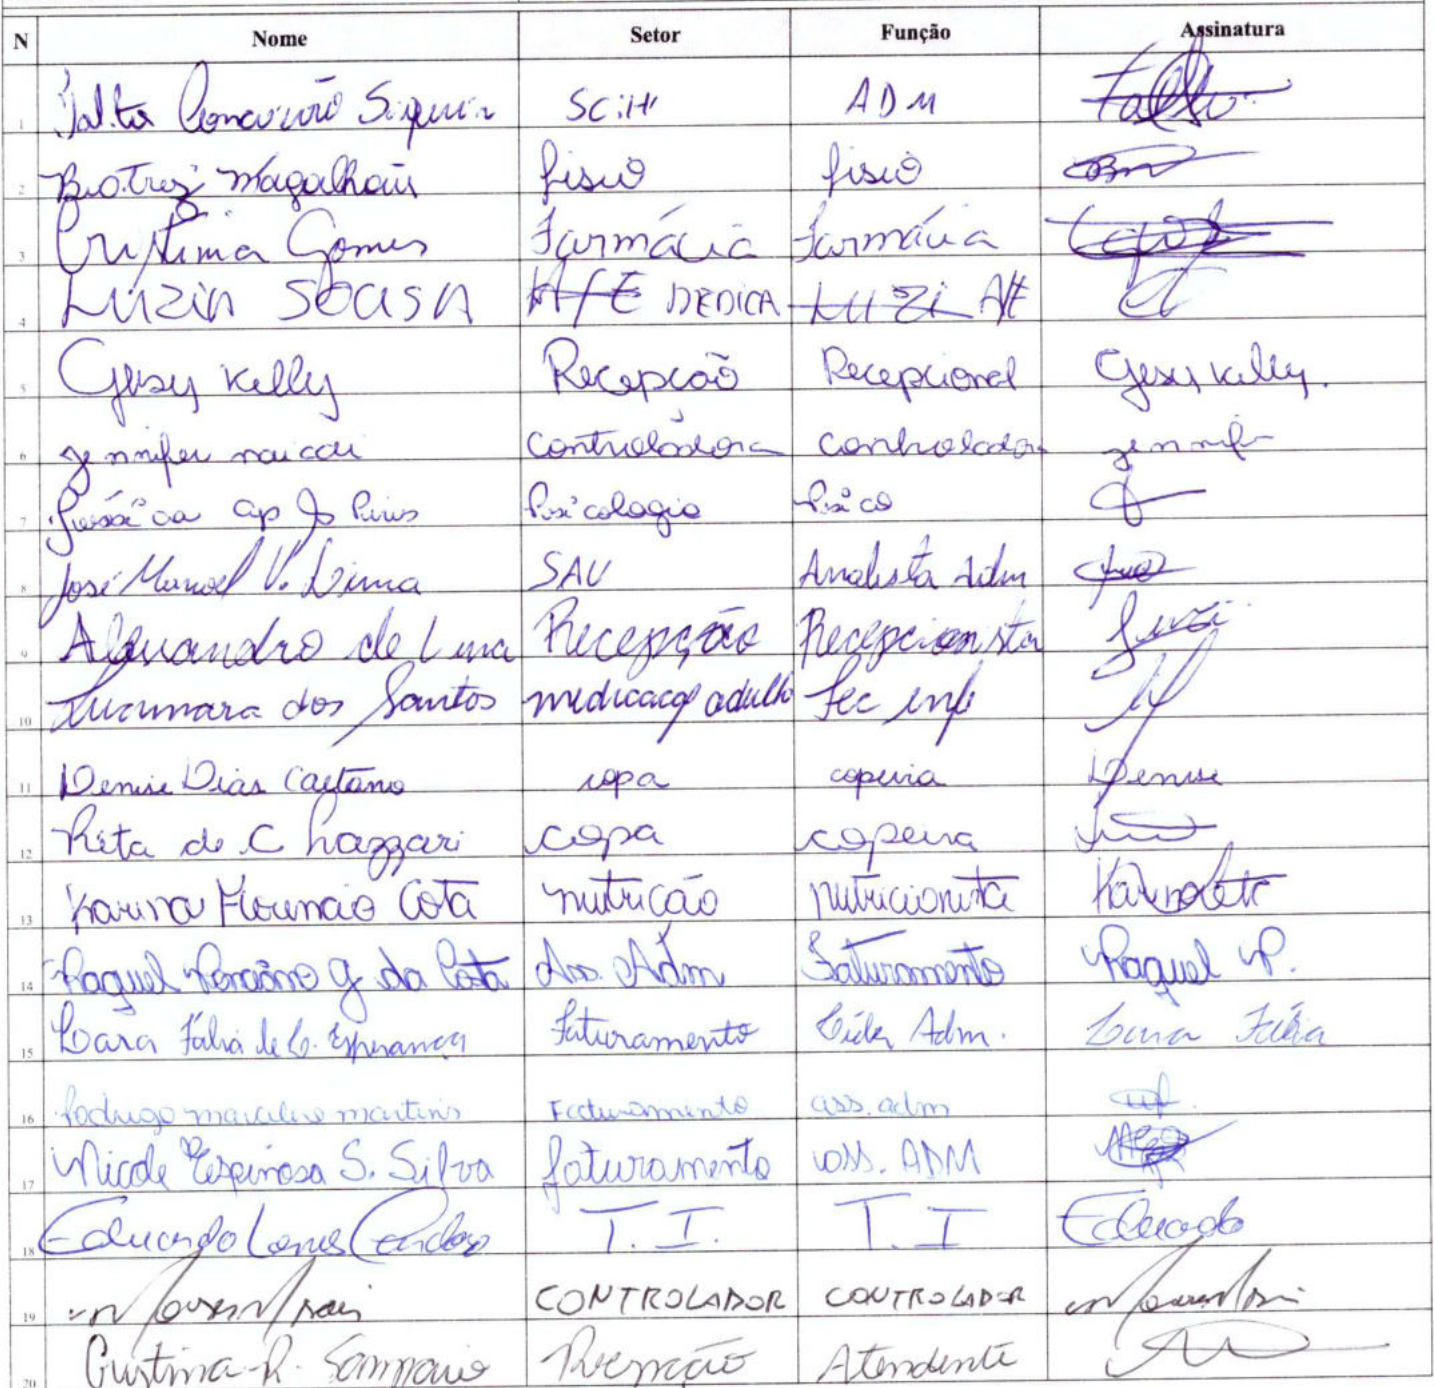 N Nome Setor Função Assinatura
1 Conceição Siqueira SCiH ADM
2 Beatriz Magalhães fisio fisio
3 Cristina Gomes Farmácia Farmácia
4 Luzia SOUSA DEDICA LUZi
5 Gesy Kelly Recepção Recepcional Gesy Kelly.
6 Jennifer Controladora Controladora Jennifer
7 Jessica ap Pires Psicologia Psico
8 José Manoel V. Lima SAU Analista Adm
9 Alexandro de Lima Recepção Recepcionista
10 dos Santos medicação adulto Tec enf
11 Denise Dias Caetano copa copeira Denise
12 Rita de C Lazzari copa copeira
13 Karina Mourão Cota nutrição nutricionista
14 Raquel g da Costa Ass. Adm Faturamento Raquel P.
15 Lara Fabia de C. Esperança Faturamento Líder Adm. Lara Fabia
16 Rodrigo marcelino martins Faturamento ass. adm
17 Nicole Espinosa S. Silva faturamento ass. ADM
18 Eduardo Cardoso T. I. T. I Eduardo
19 CONTROLADOR CONTROLADOR
20 Cristina R. Sampaio Recepção Atendente